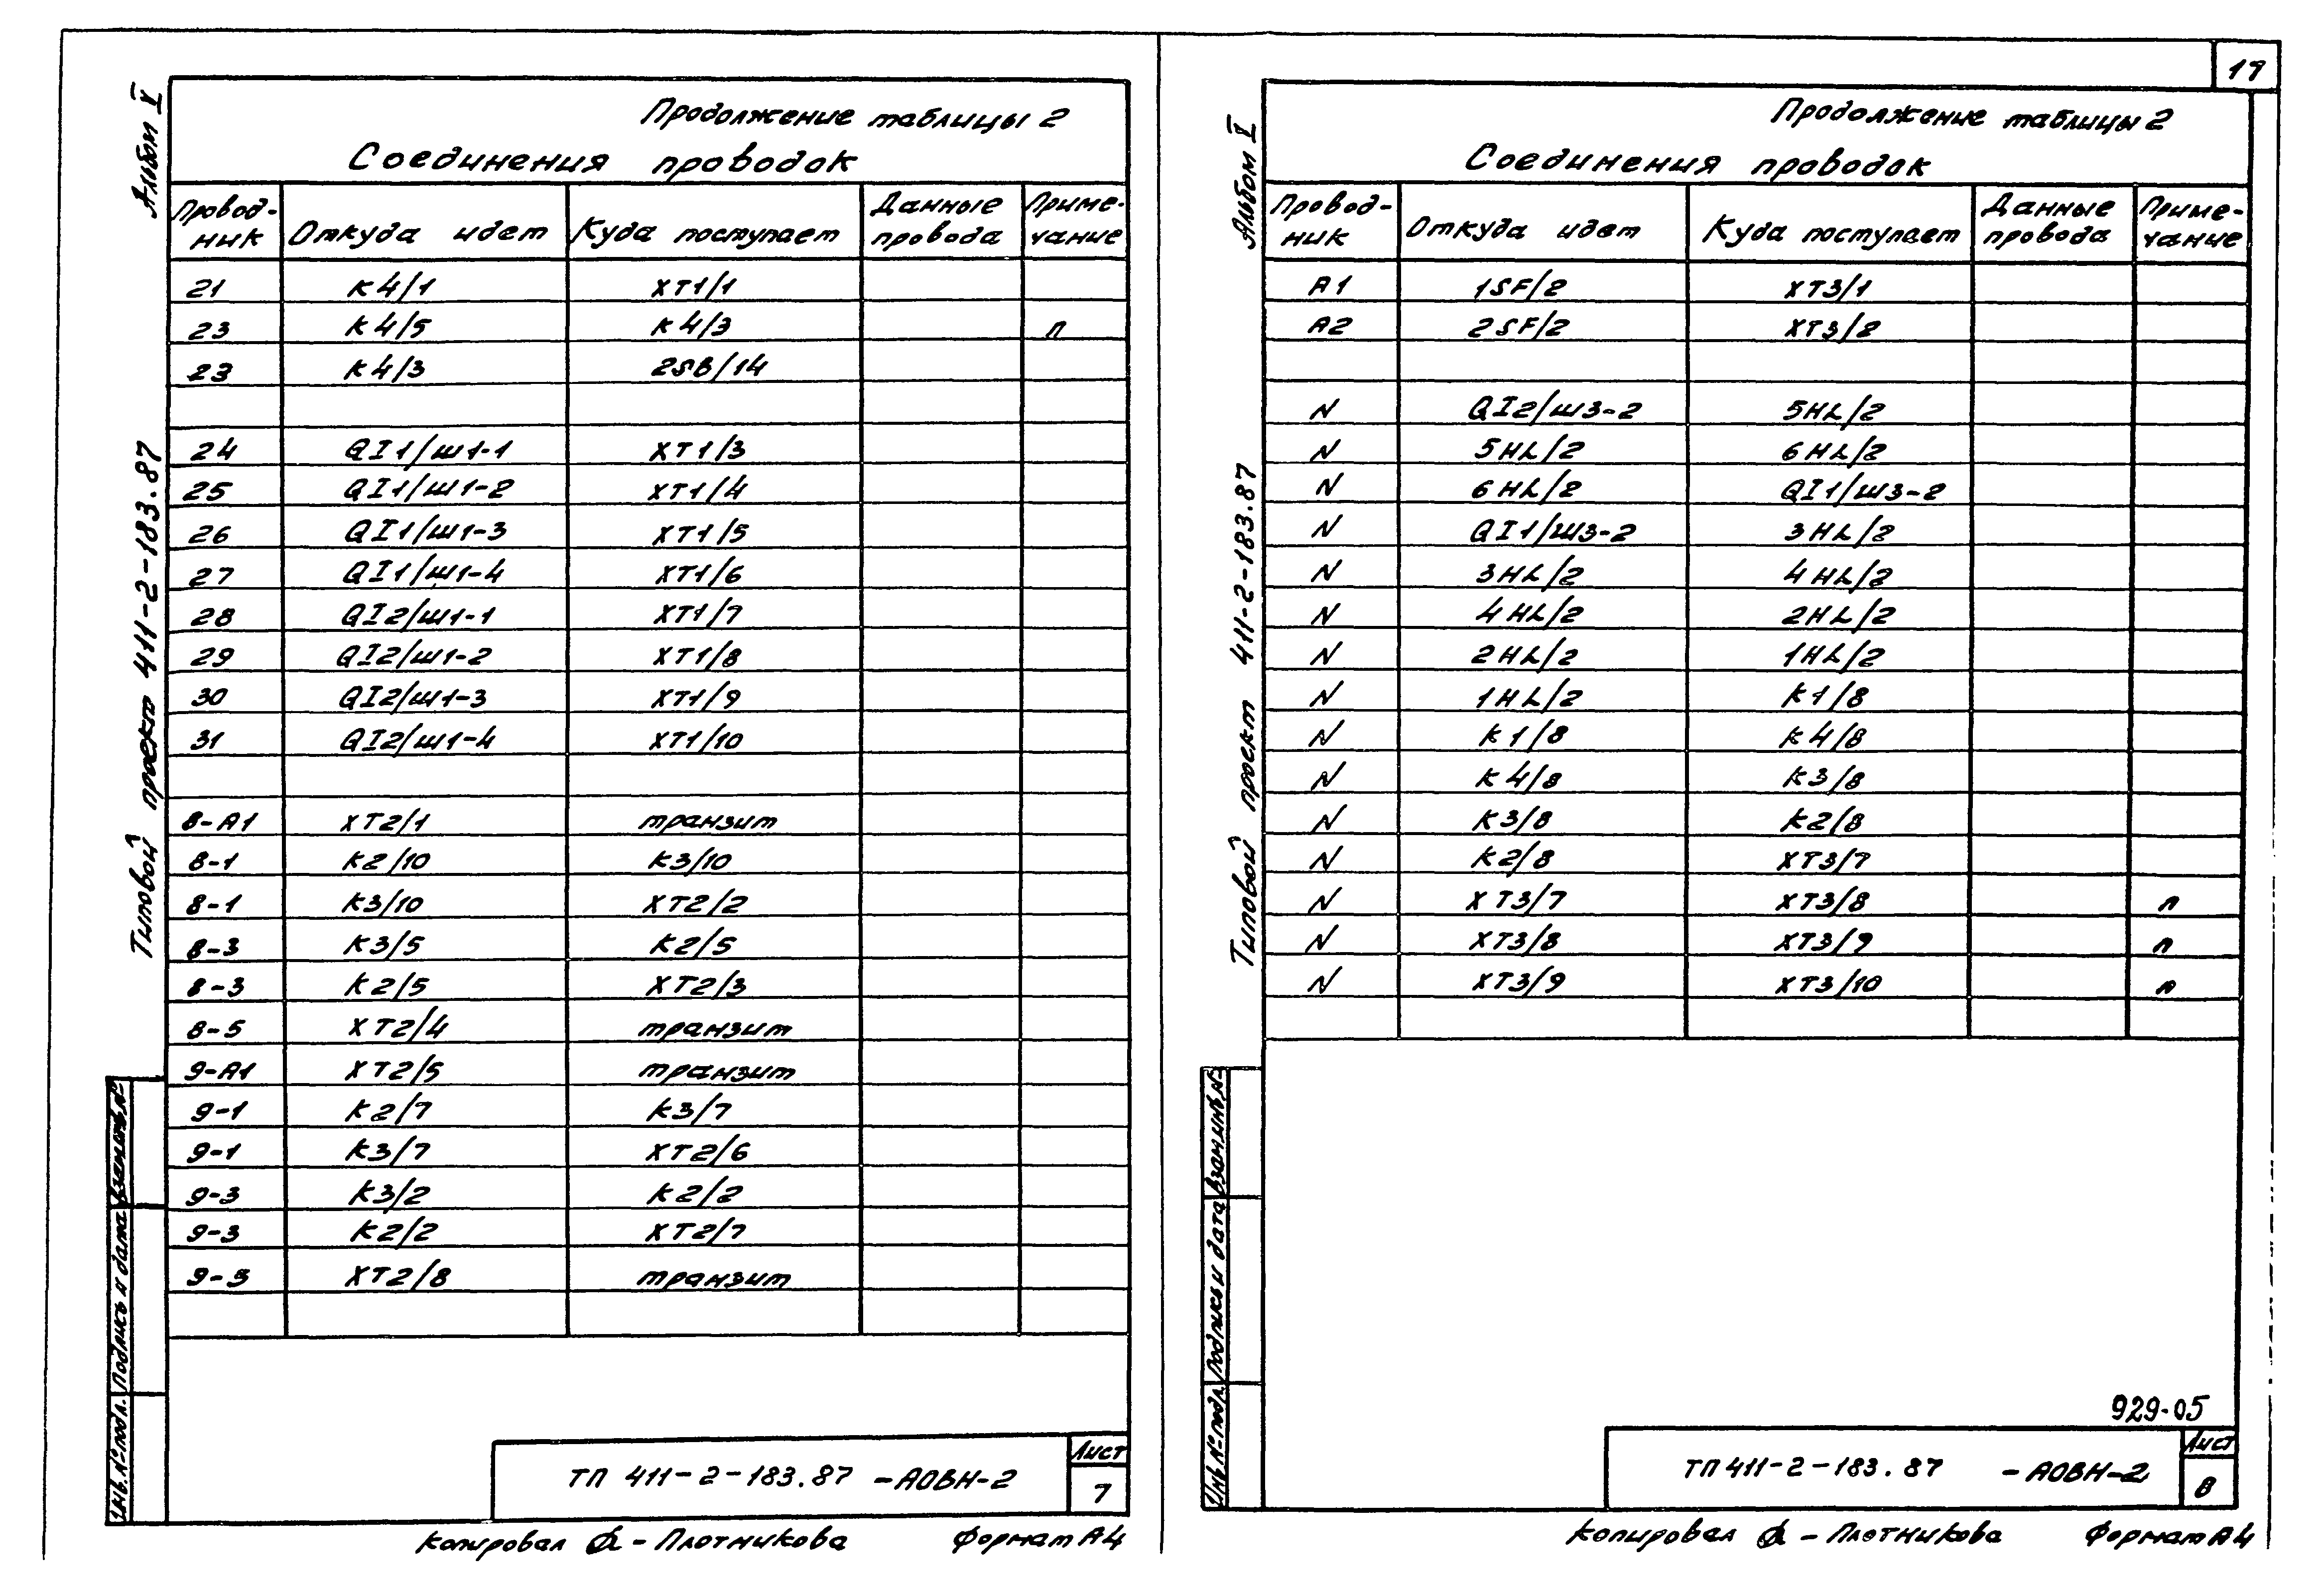 Альбом V
Типовой проект 411-2-183.87
Продолжение таблицы 2
Соединения проводок
Провод-ник Откуда идет Куда поступает Данные провода Приме-чание
21 К4/1 ХТ1/1
23 К4/5 К4/3 п
23 К4/3 2SB/14
24 QI1/Ш1-1 ХТ1/3
25 QI1/Ш1-2 ХТ1/4
26 QI1/Ш1-3 ХТ1/5
27 QI1/Ш1-4 ХТ1/6
28 QI2/Ш1-1 ХТ1/7
29 QI2/Ш1-2 ХТ1/8
30 QI2/Ш1-3 ХТ1/9
31 QI2/Ш1-4 ХТ1/10
8-А1 ХТ2/1 транзит
8-1 К2/10 К3/10
8-1 К3/10 ХТ2/2
8-3 К3/5 К2/5
8-3 К2/5 ХТ2/3
8-5 ХТ2/4 транзит
9-А1 ХТ2/5 транзит
9-1 К2/7 К3/7
9-1 К3/7 ХТ2/6
9-3 К3/2 К2/2
9-3 К2/2 ХТ2/7
9-5 ХТ2/8 транзит
Инв.№подл. Подпись и дата Взам.инв.№
ТП 411-2-183.87 -АОВН-2
Лист
7
Копировал - Плотникова Формат А4
19
Альбом V
Типовой проект 411-2-183.87
Продолжение таблицы 2
Соединения проводок
Провод-ник Откуда идет Куда поступает Данные провода Приме-чание
А1 1SF/2 ХТ3/1
А2 2SF/2 ХТ3/2
N QI2/Ш3-2 5HL/2
N 5HL/2 6HL/2
N 6HL/2 QI1/Ш3-2
N QI1/Ш3-2 3HL/2
N 3HL/2 4HL/2
N 4HL/2 2HL/2
N 2HL/2 1HL/2
N 1HL/2 К1/8
N К1/8 К4/8
N К4/8 К3/8
N К3/8 К2/8
N К2/8 ХТ3/7
N ХТ3/7 ХТ3/8 п
N ХТ3/8 ХТ3/9 п
N ХТ3/9 ХТ3/10 п
Инв.№подл. Подпись и дата Взам.инв.№
929-05
ТП 411-2-183.87 -АОВН-2
Лист
8
Копировал - Плотникова Формат А4